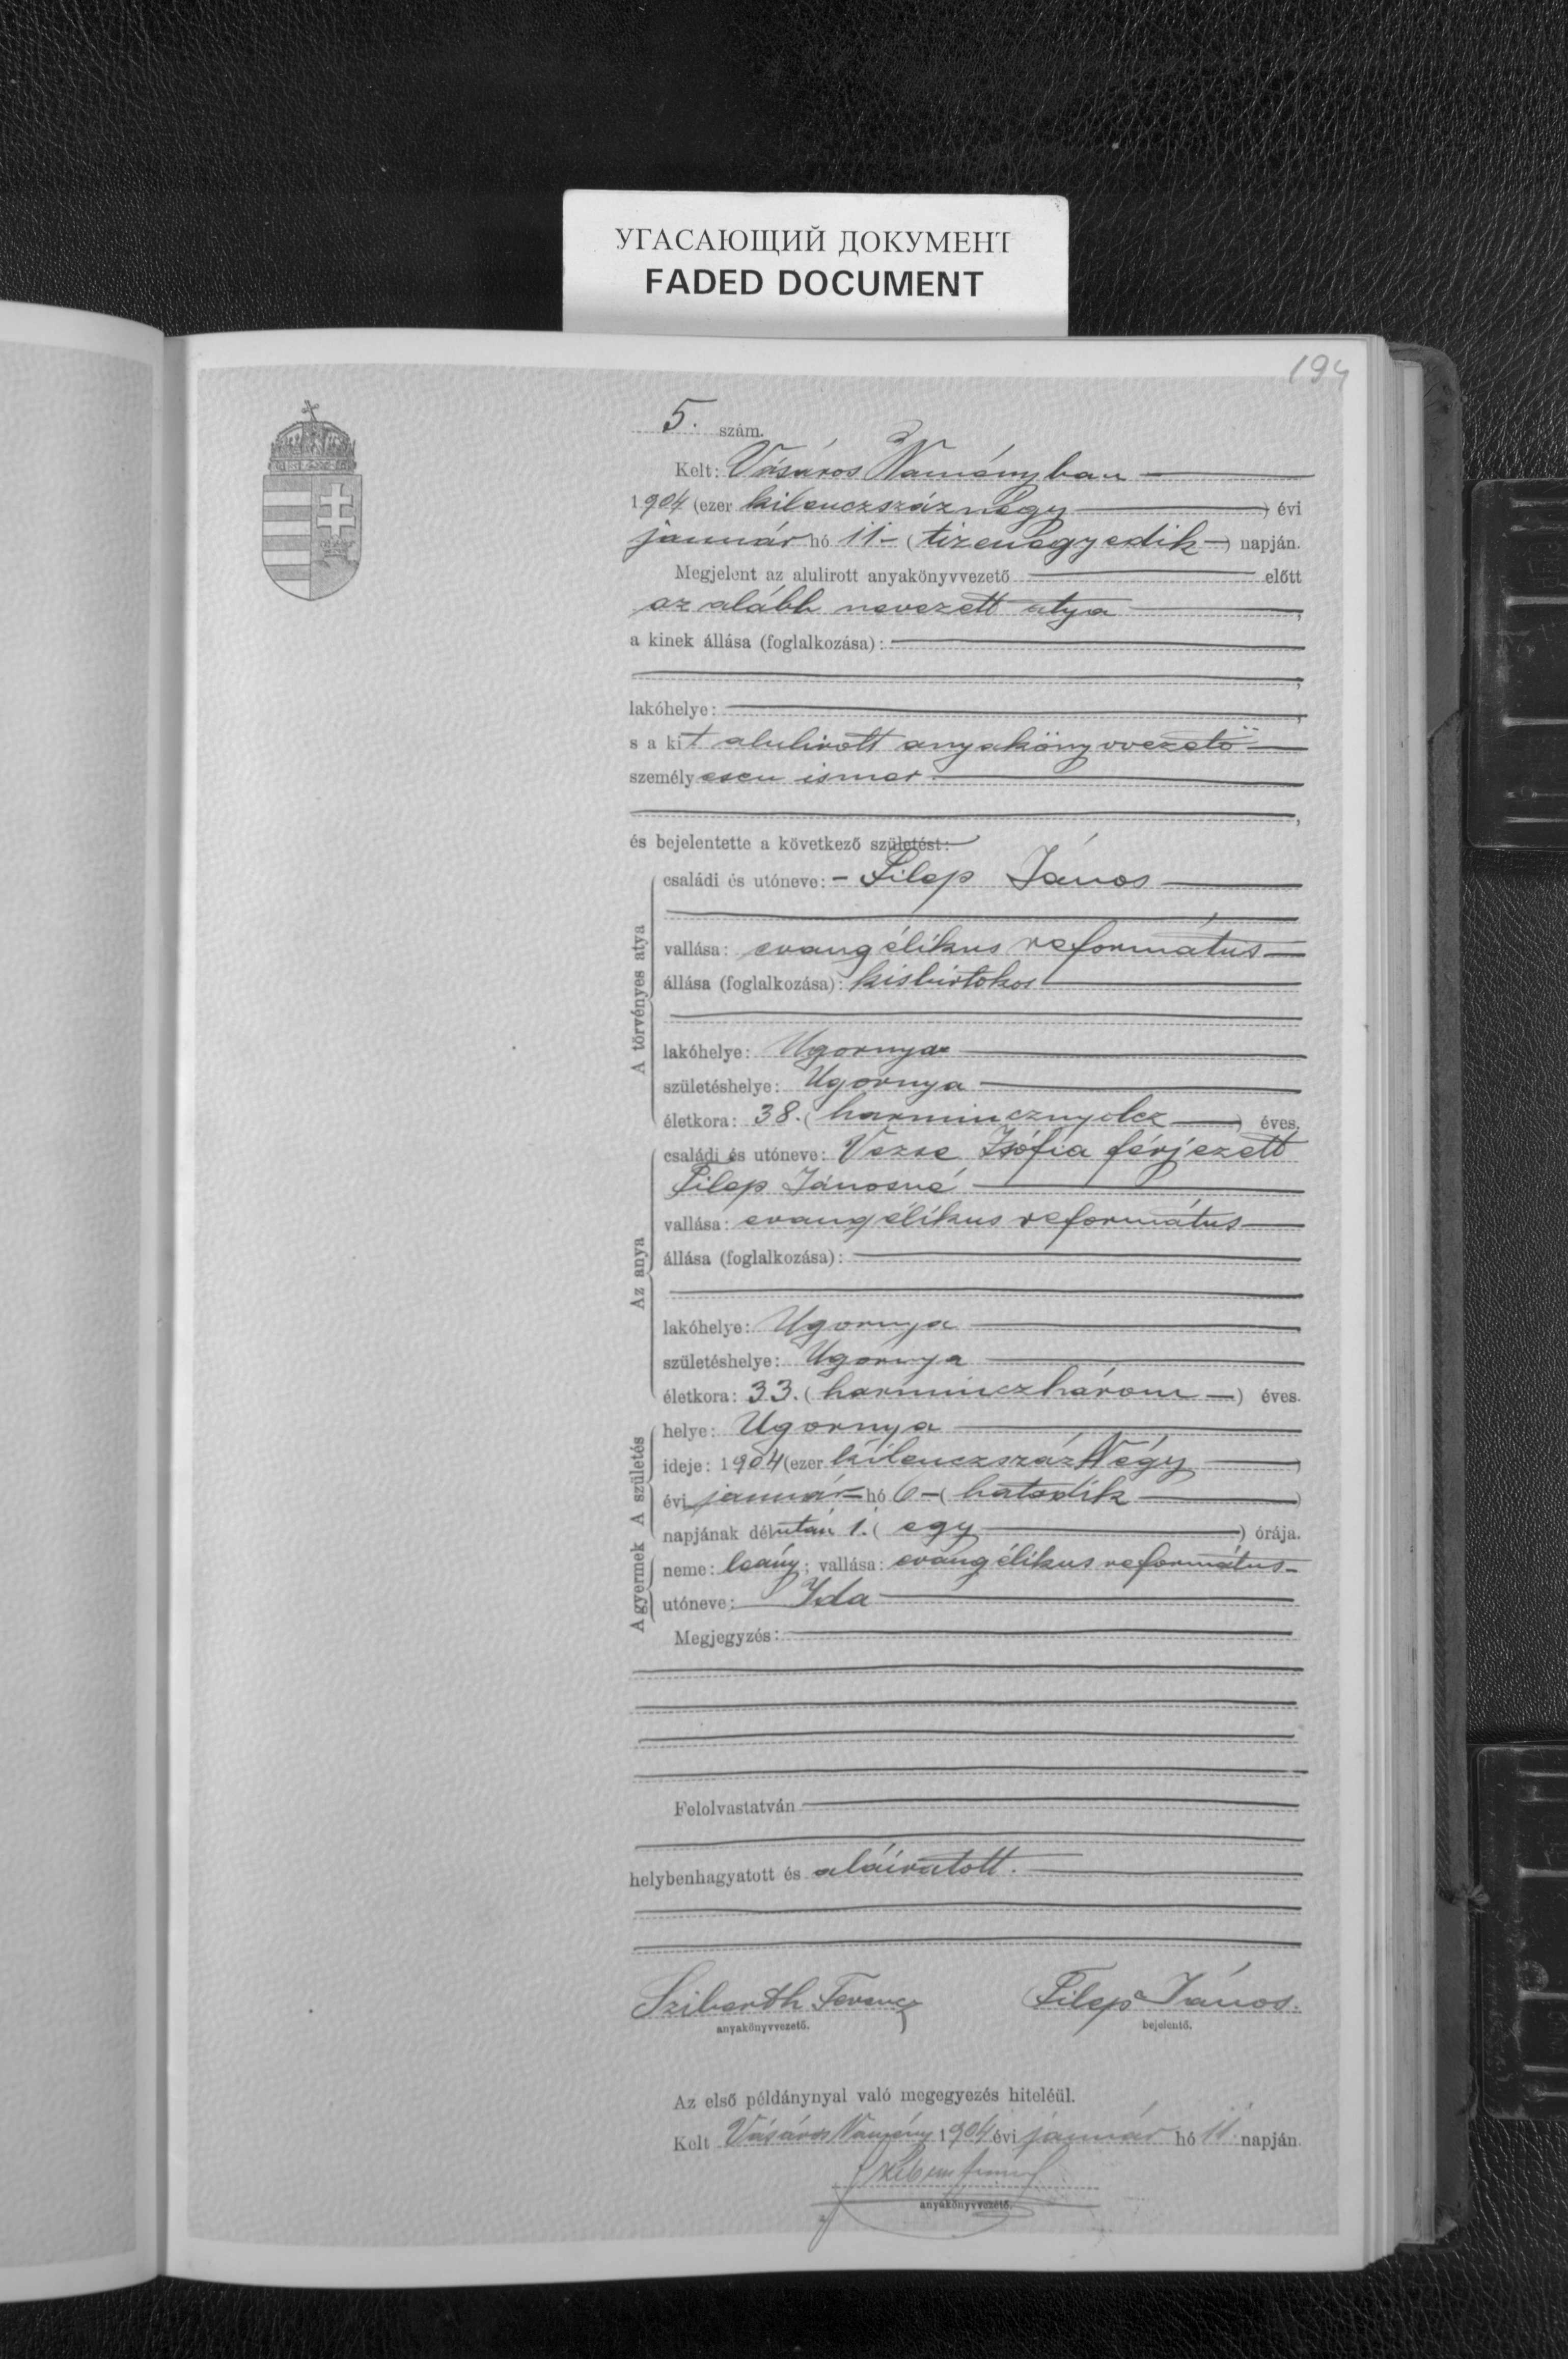 УГАСАЮЩИЙ ДОКУМЕНТ
FADED DOCUMENT
194
5. szám.
Kelt: Vásáros Naményban
1904 (ezer kilenczszáznégy) évi
január hó 11 (tizenegyedik) napján.
Megjelent az alulirott anyakönyvvezető előtt
az alább nevezett atya,
a kinek állása (foglalkozása):
;
lakóhelye:,
s a kit alulirott anyakönyvvezető
személyesen ismer
,
és bejelentette a következő születést:
A törvényes atya
családi és utóneve: Filep János
vallása: evangélikus református
állása (foglalkozása): kisbirtokos
lakóhelye: Ugornya
születéshelye: Ugornya
életkora: 38. (harmincznyolcz) éves.
Az anya
családi és utóneve: Vezse Zsófia férjezett
Filep Jánosné
vallása: evangélikus református
állása (foglalkozása):
lakóhelye: Ugornya
születéshelye: Ugornya
életkora: 33. (harminczhárom) éves.
A születés
helye: Ugornya
ideje: 1904 (ezer kilenczszáz Négy)
évi január hó 6 (hatodik)
napjának délután 1. (egy) órája.
A gyermek
neme: leány; vallása: evangélikus református
utóneve: Ida
Megjegyzés:
Felolvastatván
helybenhagyatott és aláiratott.
Sziberth Ferencz Filep János.
anyakönyvvezető. bejelentő.
Az első példánynyal való megegyezés hiteléül.
Kelt Vásáros Namény 1904 évi január hó 11 napján.
anyakönyvvezető.